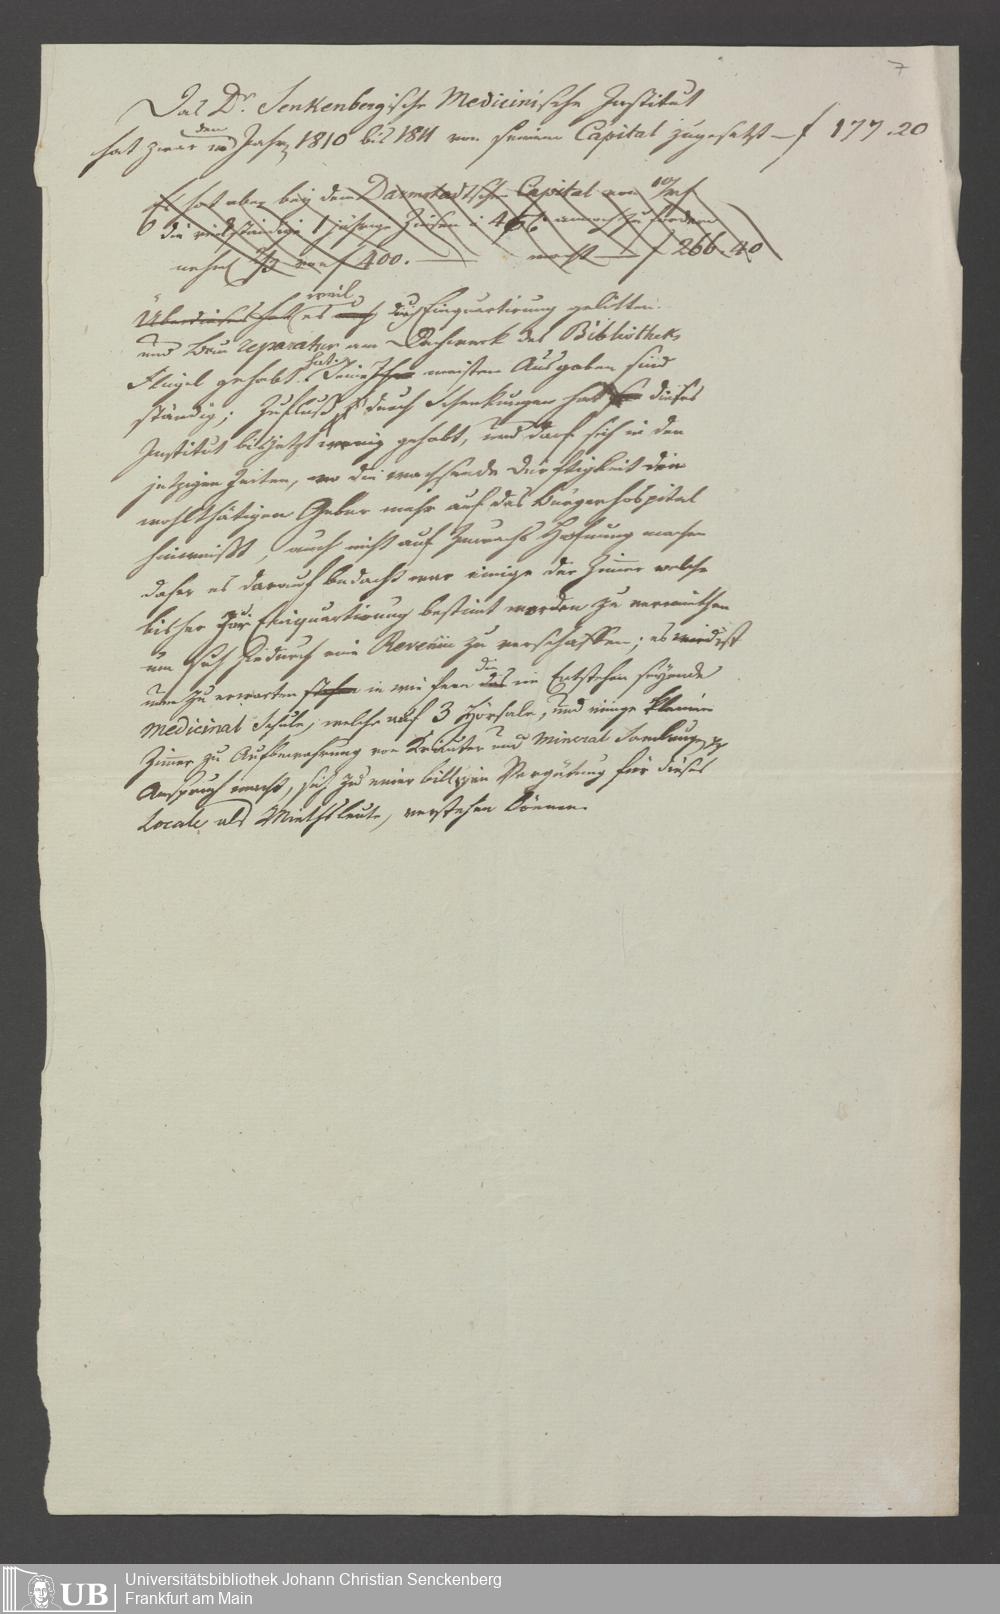 7
Das Dr. Senkenbergische Medicinische Institut
hat zwar in den Jahren 1810 bis 1811 von seinem Capital zugesetzt — f 177.20
Es hat aber bey dem Darmstadtschen Capital von
die rückständige 1 jährige Zinsen annoch zu fordern
von f 400. — macht — f 266.40
Überdieses hat es weil auch durch Einquartirung gelitten
und Bau reparatur am Dachwerk des Bibliotheks
Flügel gehabt hat. Seine meisten Ausgaben sind
ständig; Zufluß durch Schenkungen hat dieses
Institut bis jetzt wenig gehabt, und darf sich in den
jetzigen Zeiten, wo die wachsende Dürftigkeit die
wohlthätigen Geber mehr auf das Bürgerhospital
hinweißt, auch nicht auf Hofnung machen
daher es darauf bedacht war einige der Zimmer welche
bisher zur Einquartirung bestimt worden zu vermiethen
um sich hiedurch eine Revenüe zu verschaffen; es ist
nun zu erwarten in wie fern die das im Entstehen seyende
Medicinal Schule, welche auf 3 Hörsäle, und einige kleine
Zimmer zu Aufbewahrung von Kräuter und Mineral Samlungen
Anspruch macht, sich zu einer billigen Vergütung für dieses
Locale als Miethsleute, verstehen könne.
UB
Universitätsbibliothek Johann Christian Senckenberg
Frankfurt am Main